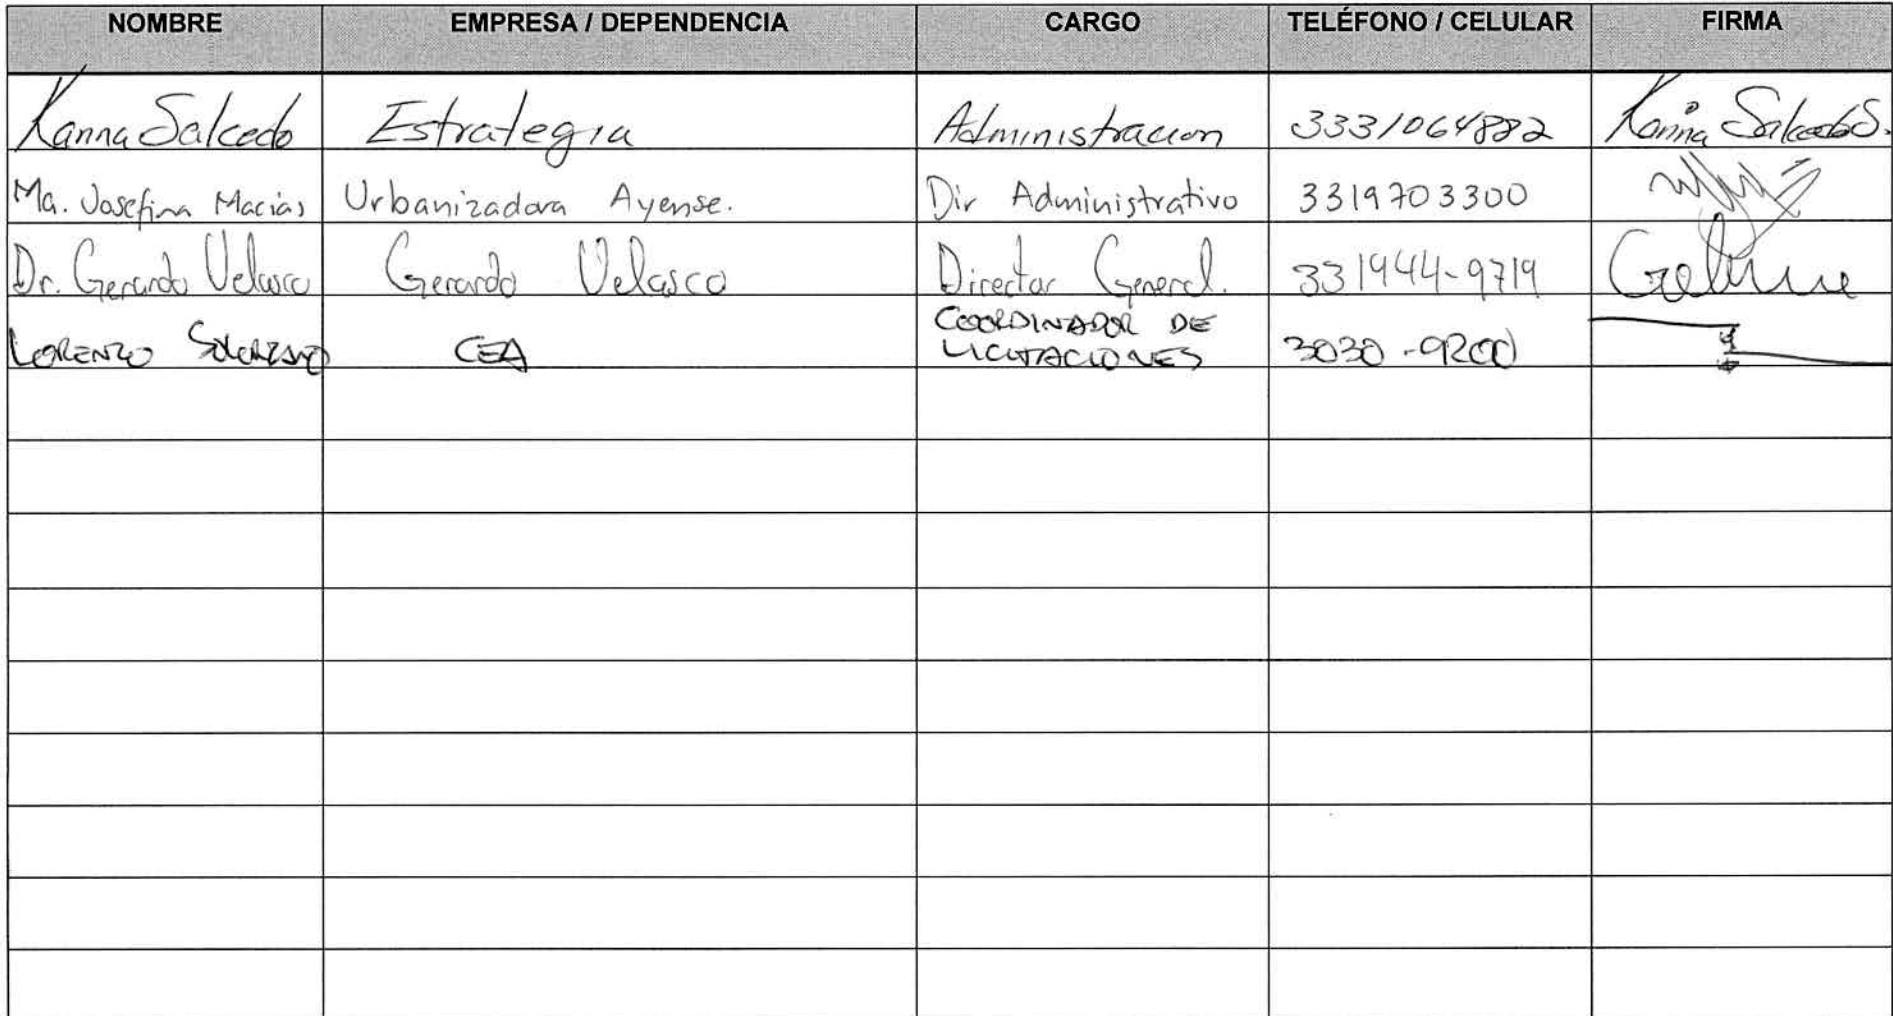 NOMBRE EMPRESA / DEPENDENCIA CARGO TELÉFONO / CELULAR FIRMA
Karina Salcedo Estrategia Administracion 3331064882 Karina Salcedo S.
Ma. Josefina Macias Urbanizadora Ayense. Dir Administrativo 3319703300
Dr. Gerardo Velasco Gerardo Velasco Director General. 331944-9719
COORDINADOR DE
LORENZO CEA LICITACIONES 3030-9200